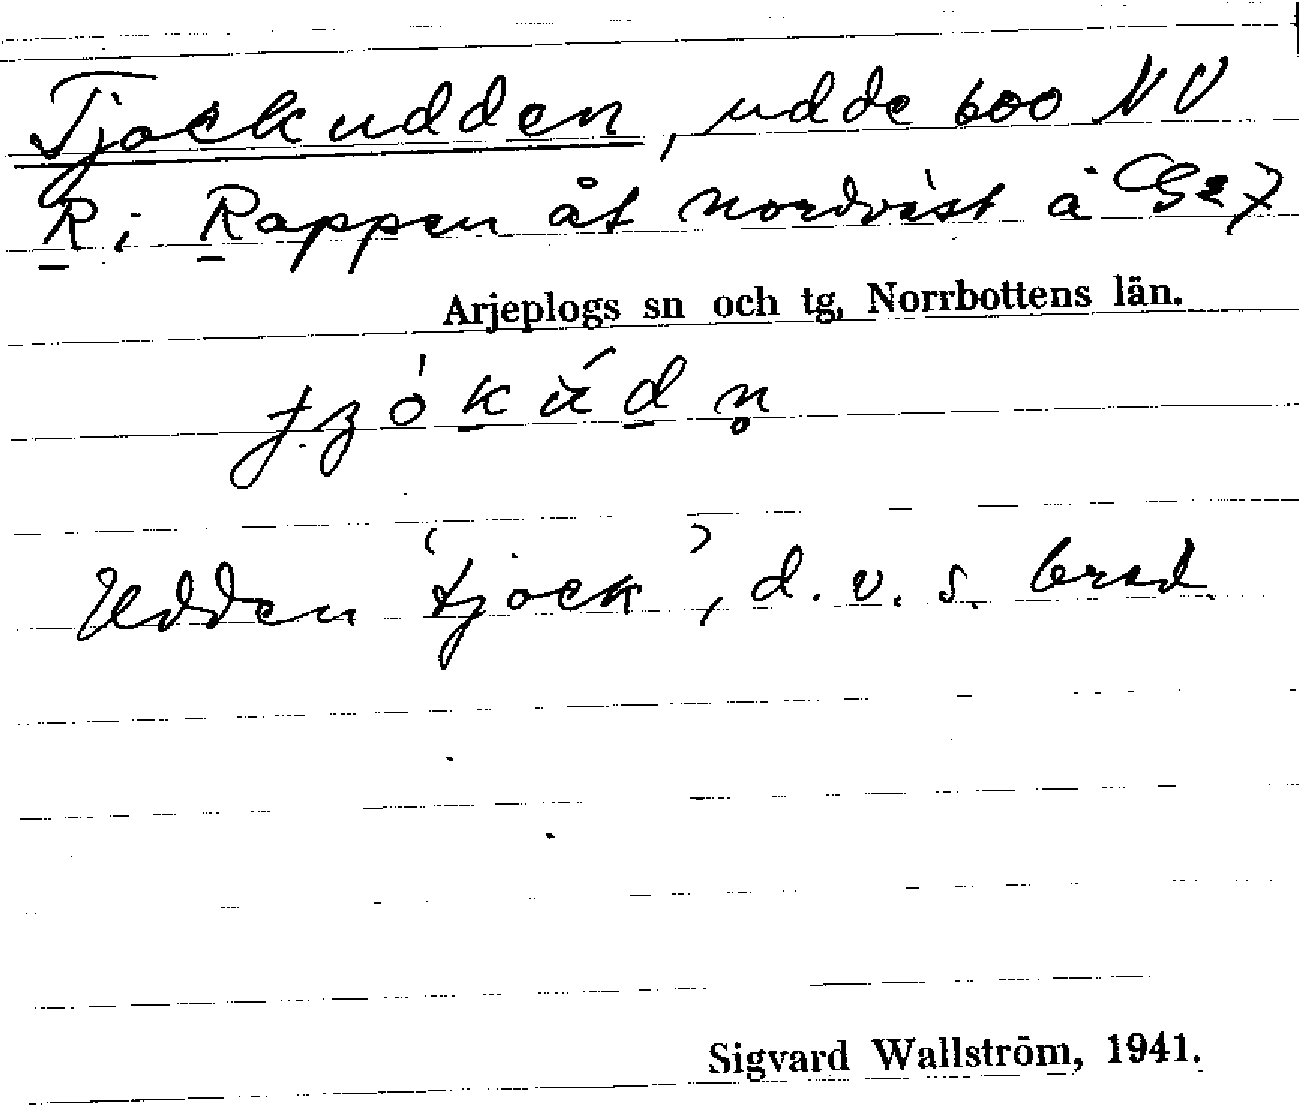 Tjockudden, udde 600 NV
R i Rappen åt nordväst å G27
Arjeplogs sn och tg, Norrbottens län.
Udden 'tjock', d. v. s. bred.
Sigvard Wallström, 1941.